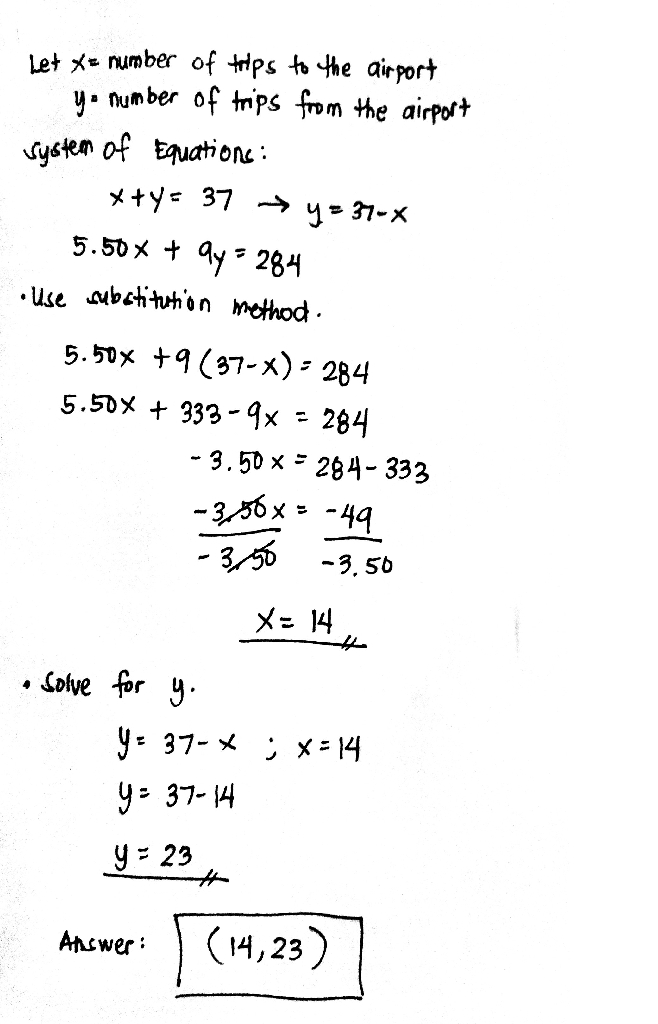 Let x = number of trips to the airport
y = number of trips from the airport
System of Equations:
x + y = 37 → y = 37-x
5.50x + 9y = 284
• Use substitution method.
5.50x + 9 (37-x) = 284
5.50x + 333 - 9x = 284
- 3.50 x = 284 - 333
-3.50 x = -49
- 3.50 -3.50
x = 14
• Solve for y.
y = 37- x ; x = 14
y = 37- 14
y = 23
Answer: (14, 23)